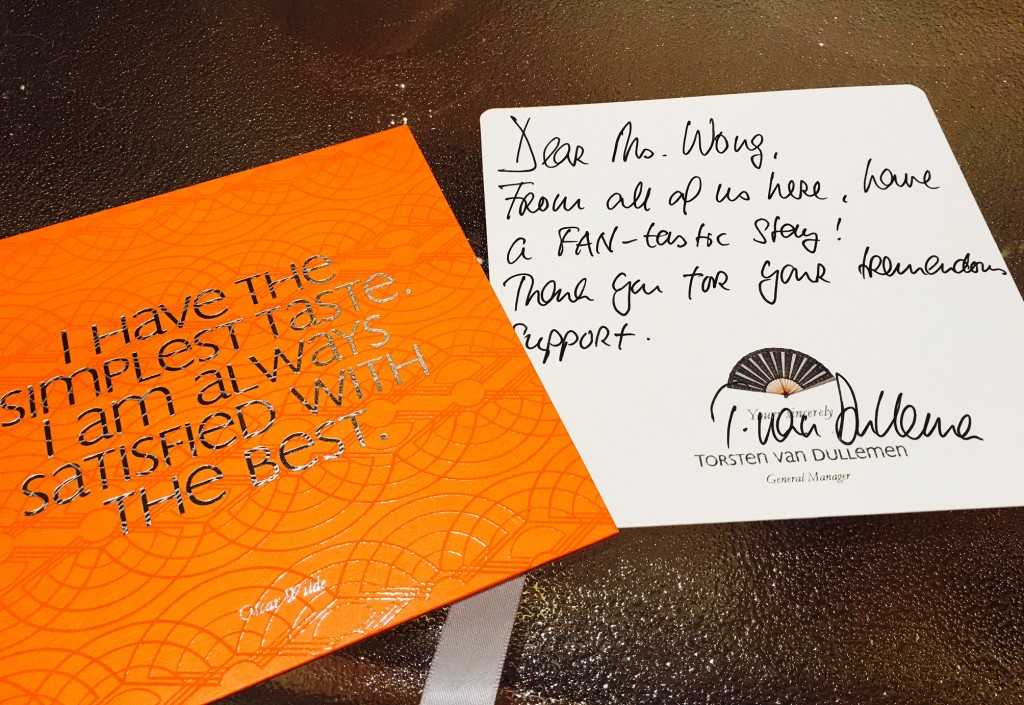 I HAVE THE
SIMPLEST TASTE.
I AM ALWAYS
SATISFIED WITH
THE BEST.
Oscar Wilde
Dear Ms. Wong,
From all of us here, have
a FAN-tastic stay!
Thank you for your tremendous
support.
Yours sincerely
T. van Dullemen
TORSTEN VAN DULLEMEN
General Manager